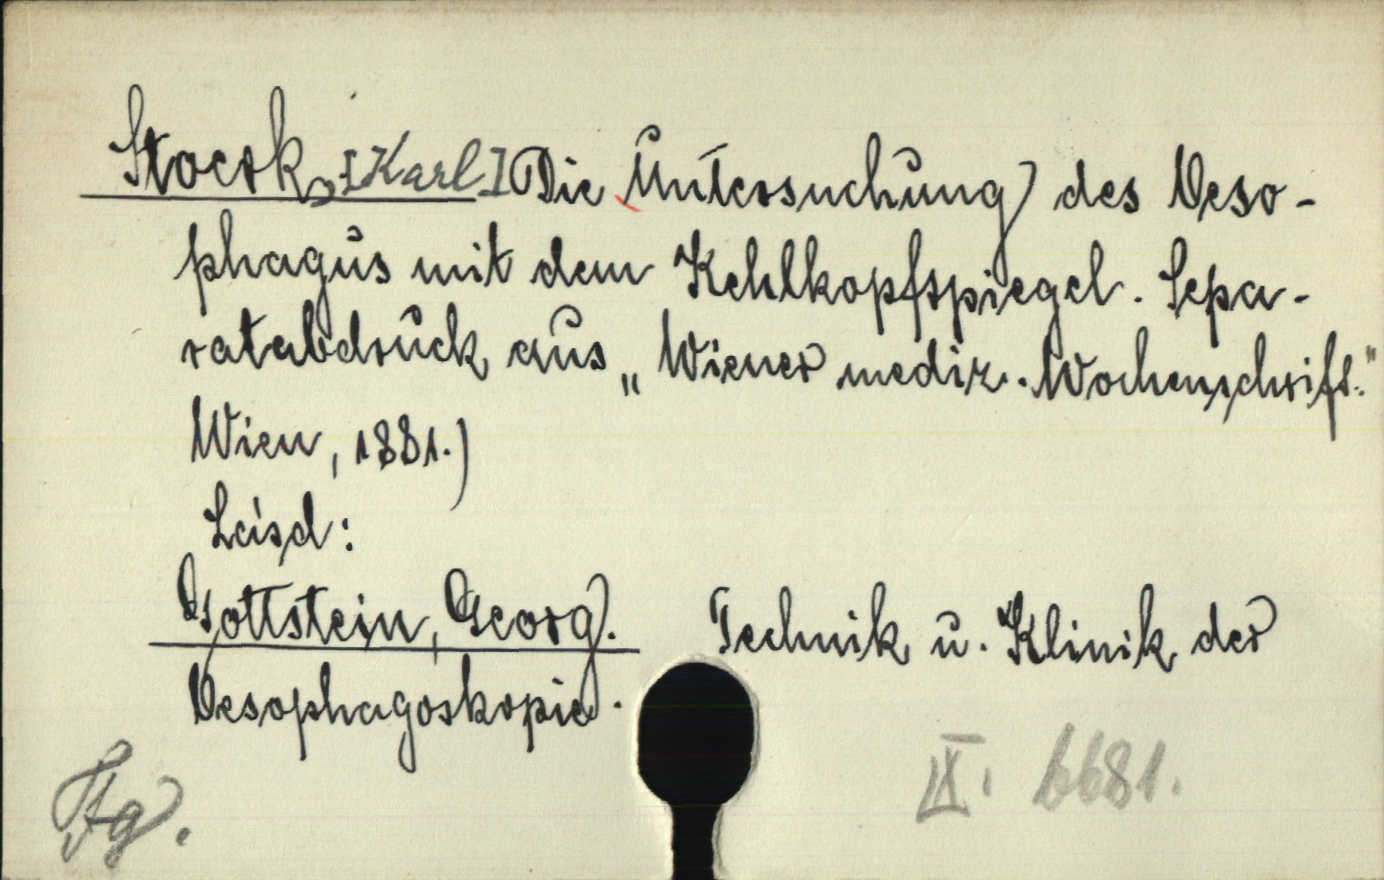 Stoerk, [Karl] Die Untersuchung des Oeso-
phagus mit dem Kehlkopfspiegel. Sepa-
ratabdruck aus „Wiener mediz. Wochenschrift."
Wien, 1881.)
Leisd:
Gottstein, Georg. Technik u. Klinik der
Oesophagoskopie.
IX. 6681.